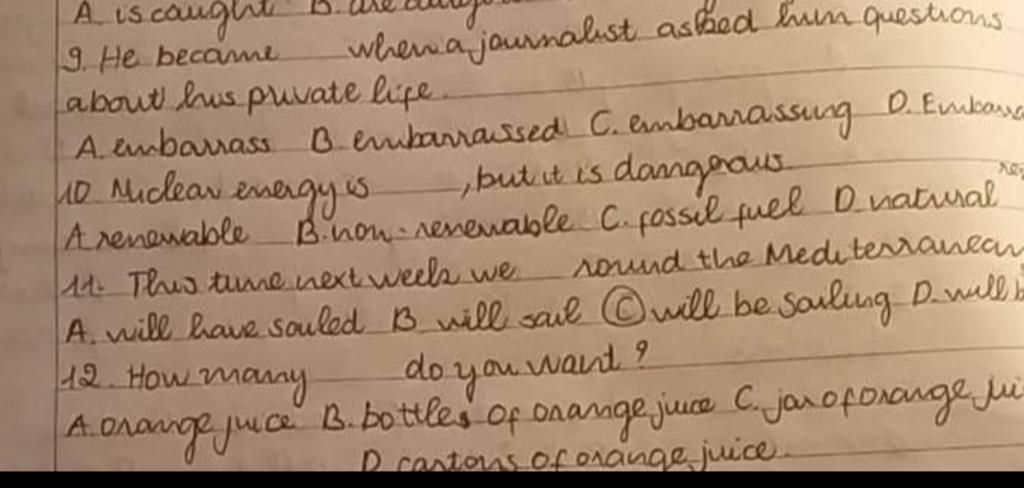 A. is caught B. are caug
9. He became when a journalist asked him questions
about his private life.
A. embarrass B. embarrassed C. embarrassing D. Embarra
10. Nuclear energy is , but it is dangerous.
A. renewable B. non-renewable C. fossil fuel D. natural
11. This time next week we round the Mediterranean
A. will have sailed B will sail C will be sailing D. will b
12. How many do you want?
A. orange juice B. bottles of orange juice C. jar of orange jui
D cartons of orange juice.